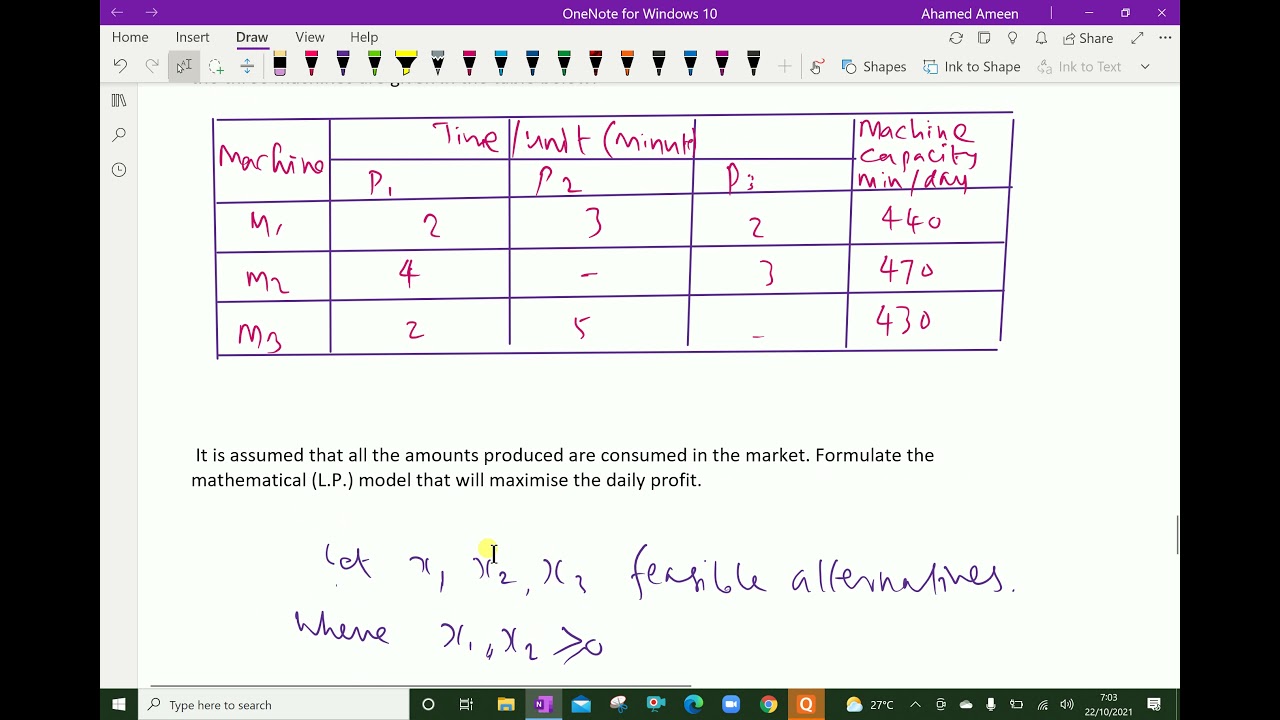 OneNote for Windows 10
Ahamed Ameen
Home Insert Draw View Help
Share
Shapes Ink to Shape Ink to Text
Machine Time/unit (minute Machine capacity min/day
P1 P2 P3
M1 2 3 2 440
M2 4 - 3 470
M3 2 5 - 430
It is assumed that all the amounts produced are consumed in the market. Formulate the
mathematical (L.P.) model that will maximise the daily profit.
Let x1 x2, x3 feasible alternatives.
Where x1, x2 ≥0
Type here to search
27°C
7:03
22/10/2021